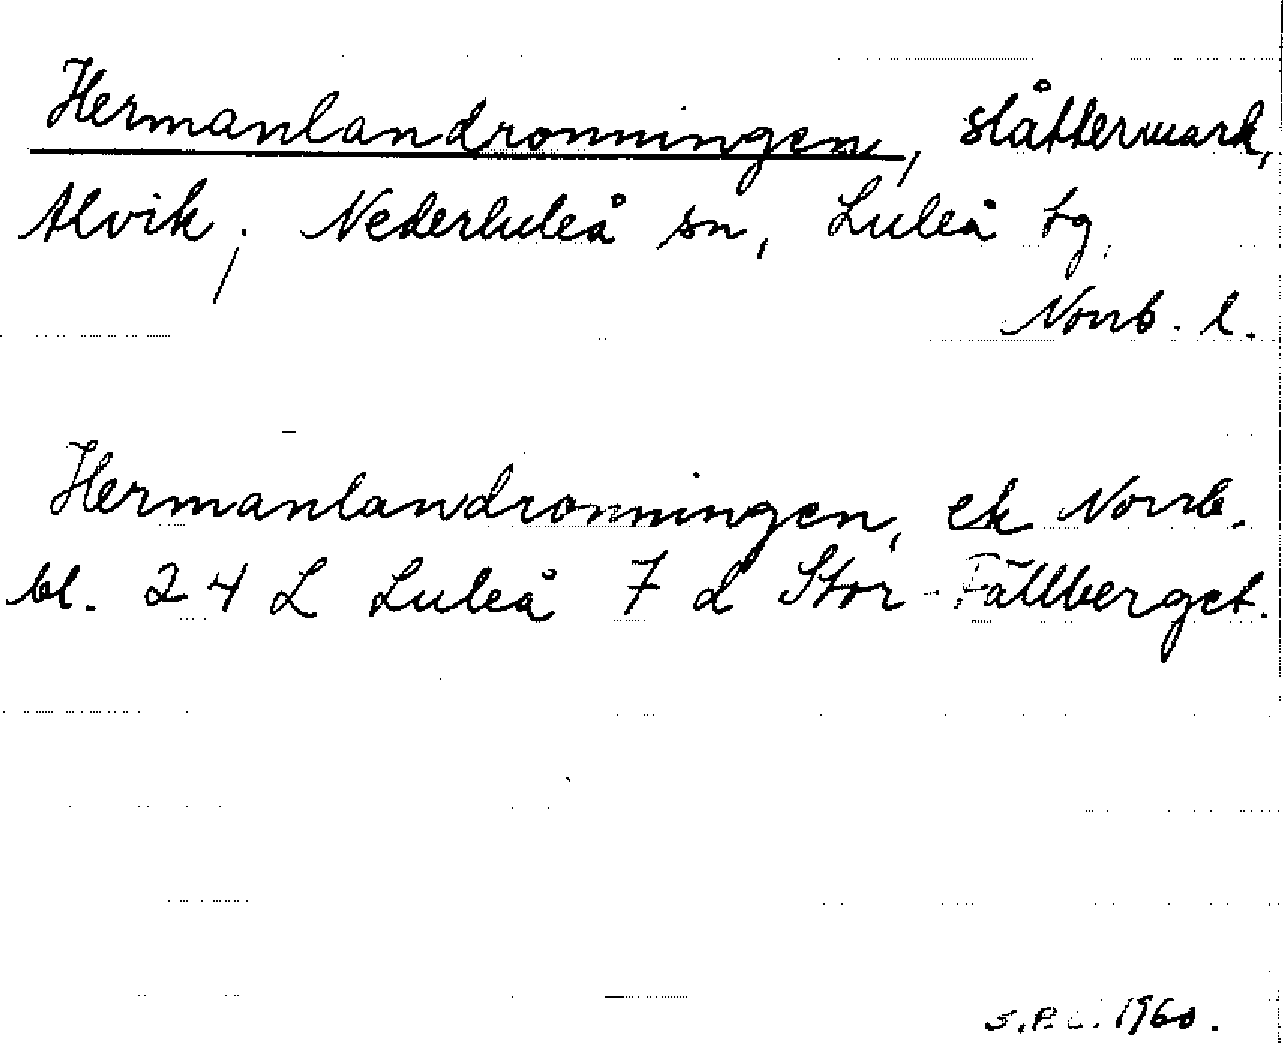 Hermanlandronningen, slåttermark,
Alvik, Nederluleå sn, Luleå tg,
Norrb. l.
Hermanlandronningen, ek Norrb.
bl. 24 L Luleå 7 d Stor-Fällberget.
1960.